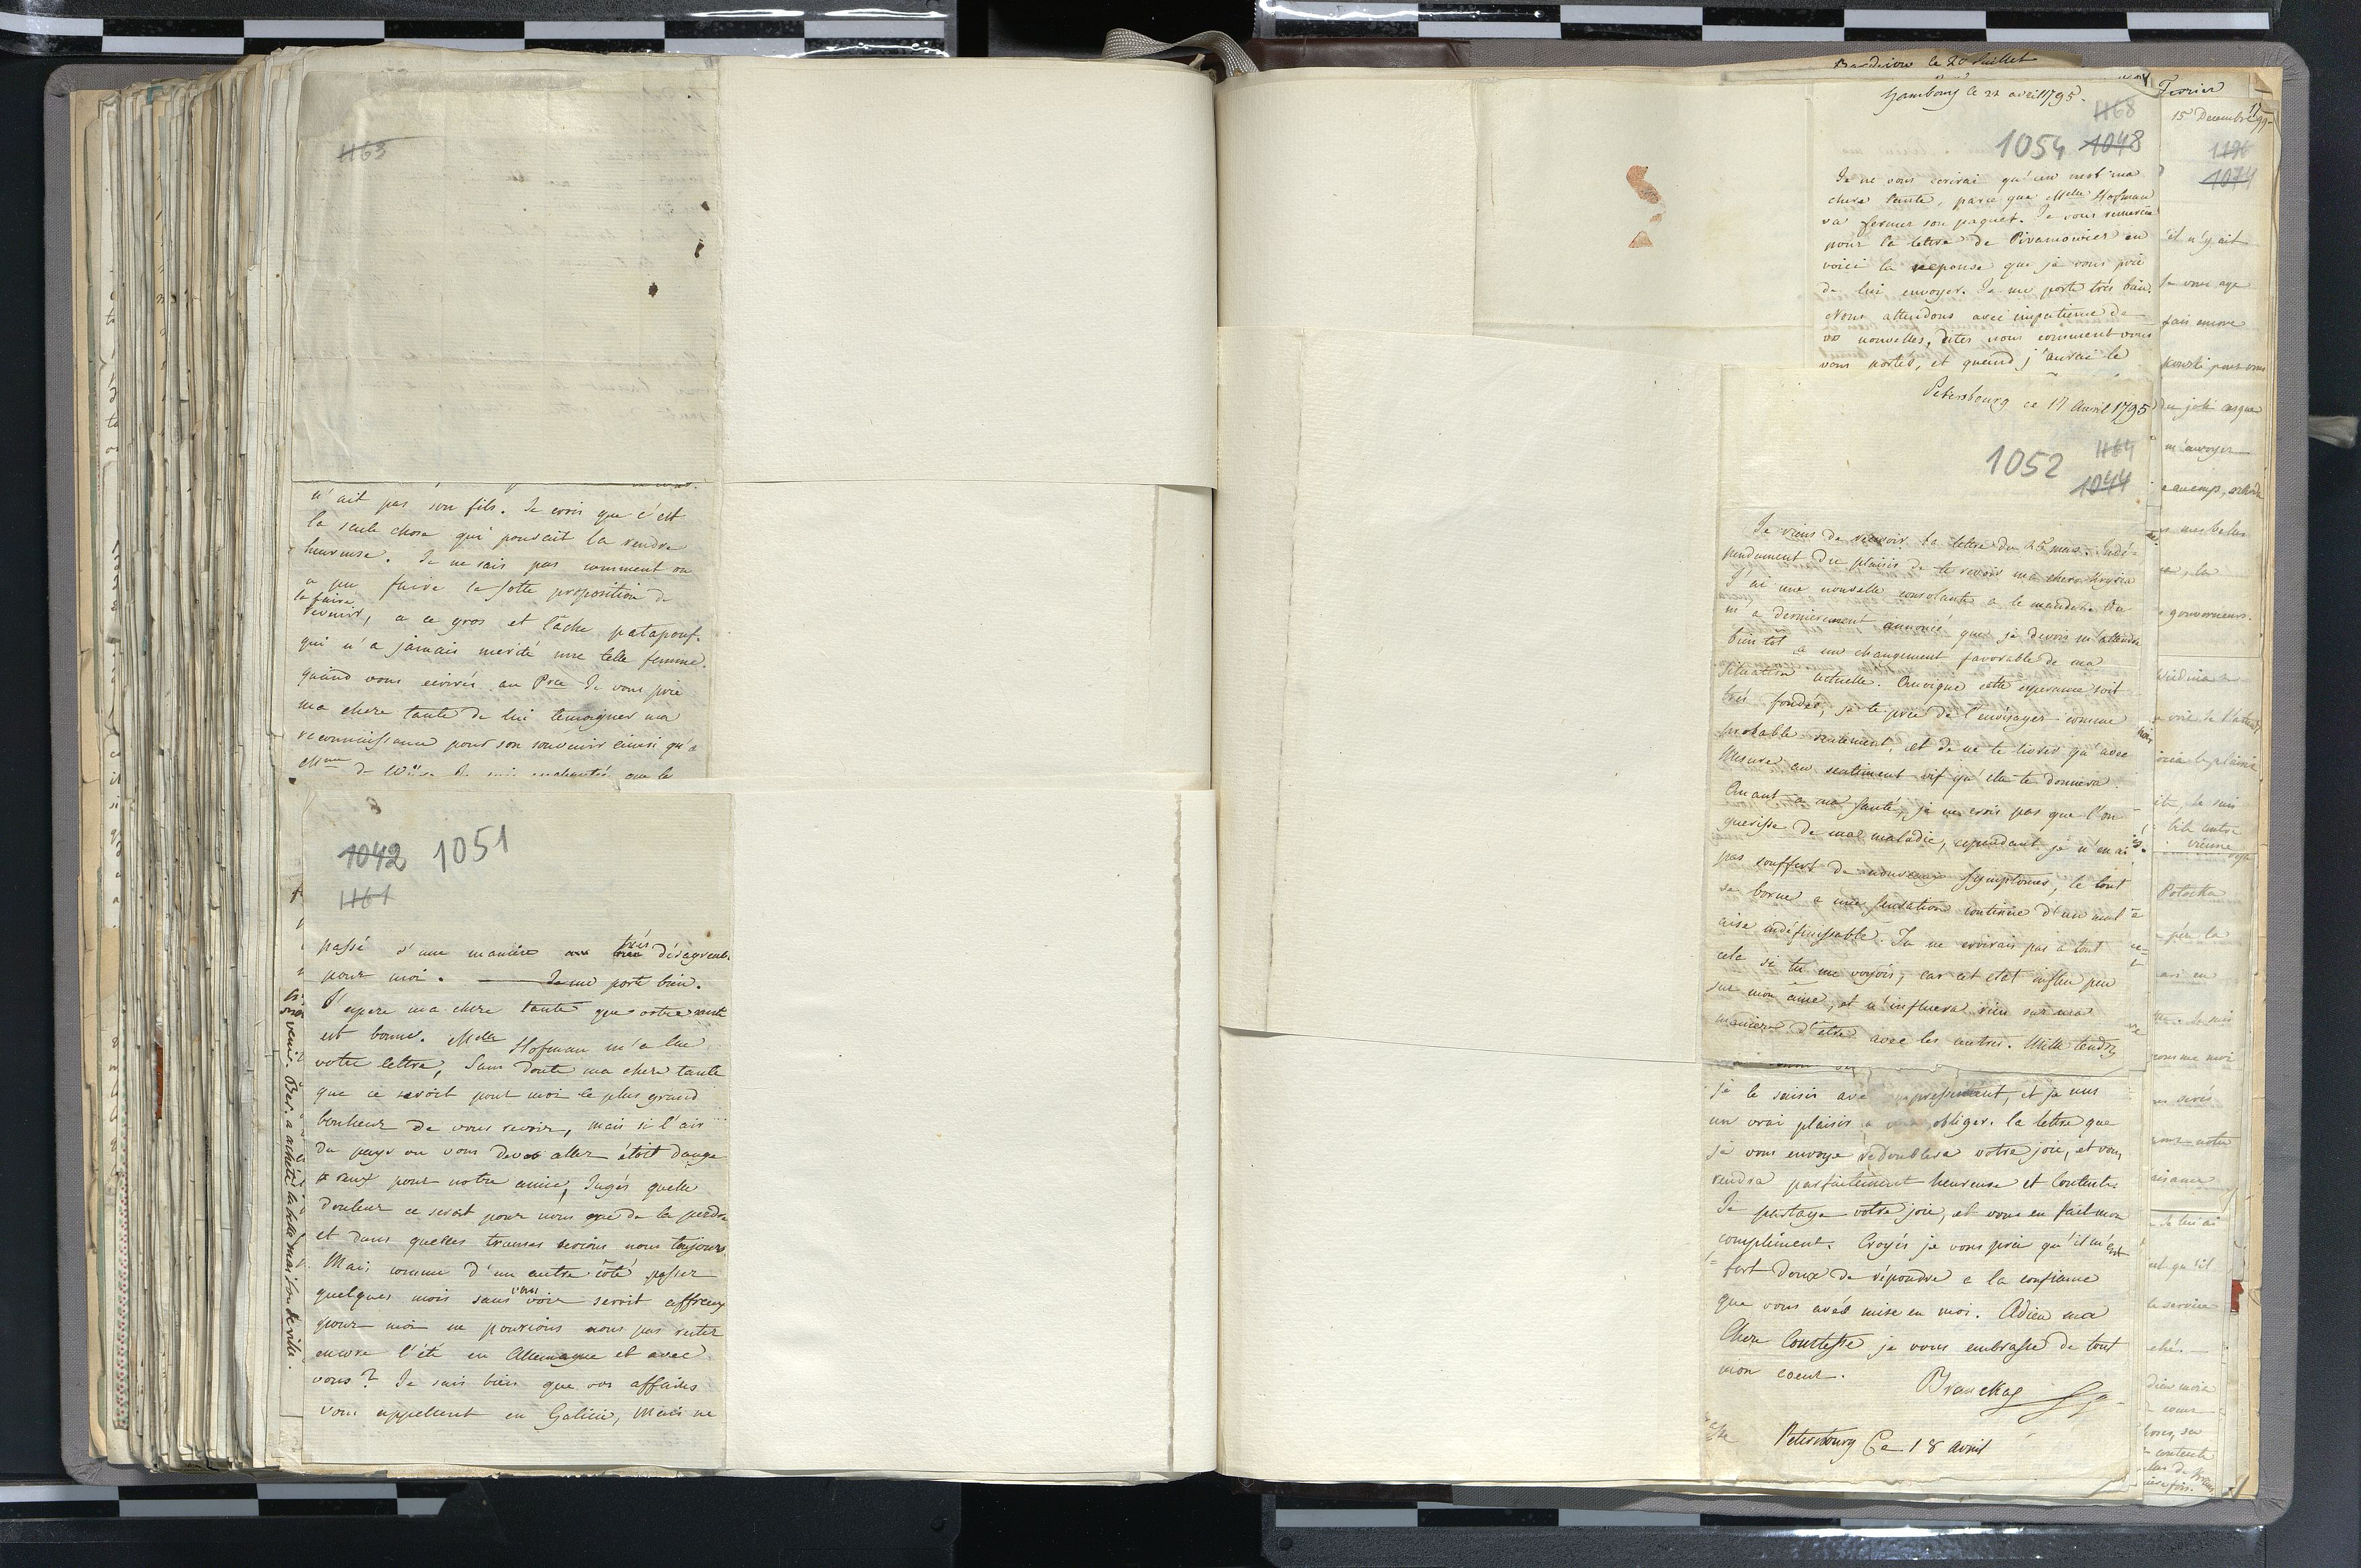 1163
n'ait pas son fils. Je crois que c'est
la seule chose qui pouvait la rendre
heureuse. Je ne sais pas comment on
a pu faire la sotte proposition de
la faire
revenir, a ce gros et lâche patapouf.
qui n'a jamais merité une telle femme.
quand vous ecrirés au Pce Je vous prie
ma chere tante de lui temoigner ma
reconnoissance pour son souvenir ainsi qu'a
Mme de
1042 1051
1161
passé d'une maniere très désagreable
pour moi. Je me porte bien.
J'espere ma chere tante que votre santé
est bonne. Melle Hofman m'a lue
votre lettre, sans doute ma chere tante
que ce seroit pour moi le plus grand
bonheur de vous revoir, mais si l'air
du pays ou vous devés aller étoit dange
reux pour notre amie, Jugés quelle
douleur ce seroit pour nous que de la perdre
et dans quelles transes serions nous toujours.
Mais comme d'un autre côté passer
quelques mois sans vous voir seroit affreux
pour moi ne pourions nous pas rester
encore l'été en Allemagne et avec
vous? Je sais bien que vos affaires
vous appellent en Galicie, Mais ne
venir. Ber. a acheté la belle maison de ville.
Bardiow le 20 Juillet
Hambourg le 22 avril 1795.
1168
1054 1048
Je ne vous ecrirai qu'un mot ma
chere tante, parce que Melle Hofman
va fermer son paquet. Je vous remercie
pour la lettre de Piramowicz en
voici la reponse que je vous prie
de lui envoyer. Je me porte très bien.
Nous attendons avec impatience de
vos nouvelles, dites nous comment vous
vous portés, et quand j'aurai le
Petersbourg ce 17 Avril 1795
1164
1052
1044
Je viens de recevoir ta lettre du 25 mars. Indé-
pendament du plaisir de te revoir ma chere Krysia
J'ai une nouvelle consolante a te mander. On
m'a dernierement annoncé que je devois m'attendre
bientôt a un changement favorable de ma
situation actuelle. Quoique cette esperance soit
très fondée, je te prie de l'envisager comme
probable seulement, et de ne te livrer qu'avec
mesure au sentiment vif qu'elle te donnera.
Quant a ma santé, je ne crois pas que l'on
guerisse de ma maladie, cependant je n'en ai
pas souffert de nouveaux symptômes, le tout
se borne a une sensation continue d'un mal
aise indéfinissable. Tu ne croirais pas a tout
cela si tu me voyois, car cet etat influe peu
sur mon âme, et n'influera rien sur ma
maniere d'etre avec les autres. Mille tendres
je le saisis avec empressement, et je me
un vrai plaisir a vous obliger. la lettre que
je vous envoye redoublera votre joie, et vous
rendra parfaitement heureuse et contente.
Je partage votre joie, et vous en fait mon
compliment. Croyés je vous prie qu'il m'est
fort doux de répondre a la confiance
que vous avés mise en moi. Adieu ma
Chere Comtesse je vous embrasse de tout
mon coeur.
Branicka
Petersbourg Ce 18 avril
Fevrier
15 Decembre 1799.
1196
1074
il n'y ait
fais encore
du joli casque
m'envoyer
gouverneurs.
Potocka